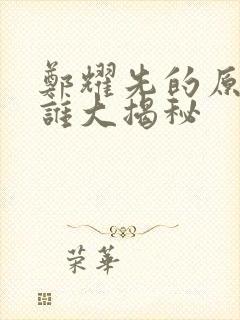 鄭耀先的原
誰大揭秘
荣華